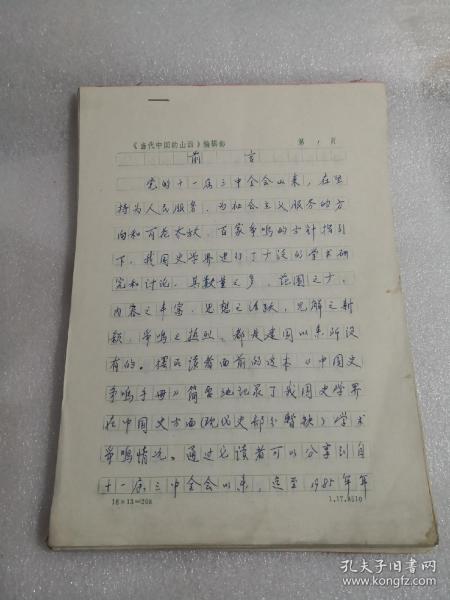 《当代中国的山西》编辑部 第 1 页
前 言
党的十一届三中全会以来，在坚
持为人民服务、为社会主义服务的方
向和百花齐放、百家争鸣的方针指引
下，我国史学界进行了广泛的学术研
究和讨论，其数量之多，范围之广，
内容之丰富，思想之活跃，见解之新
颖，争鸣之热烈，都是建国以来所没
有的。摆在读者面前的这本《中国史
争鸣手册》简要地记录了我国史学界
在中国史方面（现代史部分暂缺）学术
争鸣情况。通过它读者可以分享到自
十一届三中全会以来，迄至1985年年
16×13=208 1.17.8510
孔夫子旧书网
www.kongfz.com